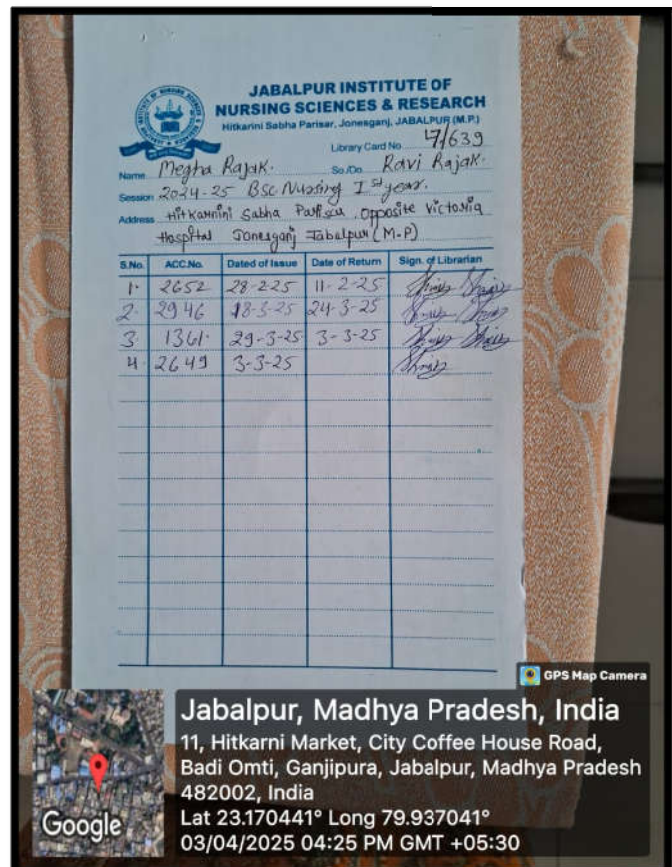 JABALPUR INSTITUTE OF
NURSING SCIENCES & RESEARCH
Hitkarini Sabha Parisar, Jonesganj, JABALPUR (M.P.)
Library Card No. 17/639
Name Megha Rajak. So./Do. Ravi Rajak.
Session 2024-25 Bsc Nursing I st year.
Address Hitkarnini Sabha Opposite Victoria
Hospital Jonesganj Jabalpur (M.P)
S.No. ACC.No. Dated of Issue Date of Return Sign. of Librarian
1. 2652 28-2-25 11-2-25
2. 2946 18-3-25 24-3-25
3. 1361. 29-3-25 3-3-25
4. 2649 3-3-25
GPS Map Camera
Jabalpur, Madhya Pradesh, India
11, Hitkarni Market, City Coffee House Road,
Badi Omti, Ganjipura, Jabalpur, Madhya Pradesh
482002, India
Lat 23.170441° Long 79.937041°
03/04/2025 04:25 PM GMT +05:30
Google